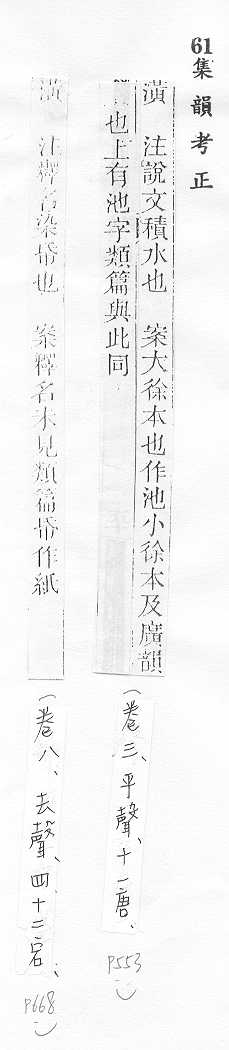 61集韻考正
潢　注說文積水也　案大徐本也作池小徐本及廣韻
也上有池字類篇與此同
(卷三、平聲、十一唐、
P553
潢　注釋名染帋也　案釋名未見類篇帋作紙
(卷八、去聲、四十二宕、
P668